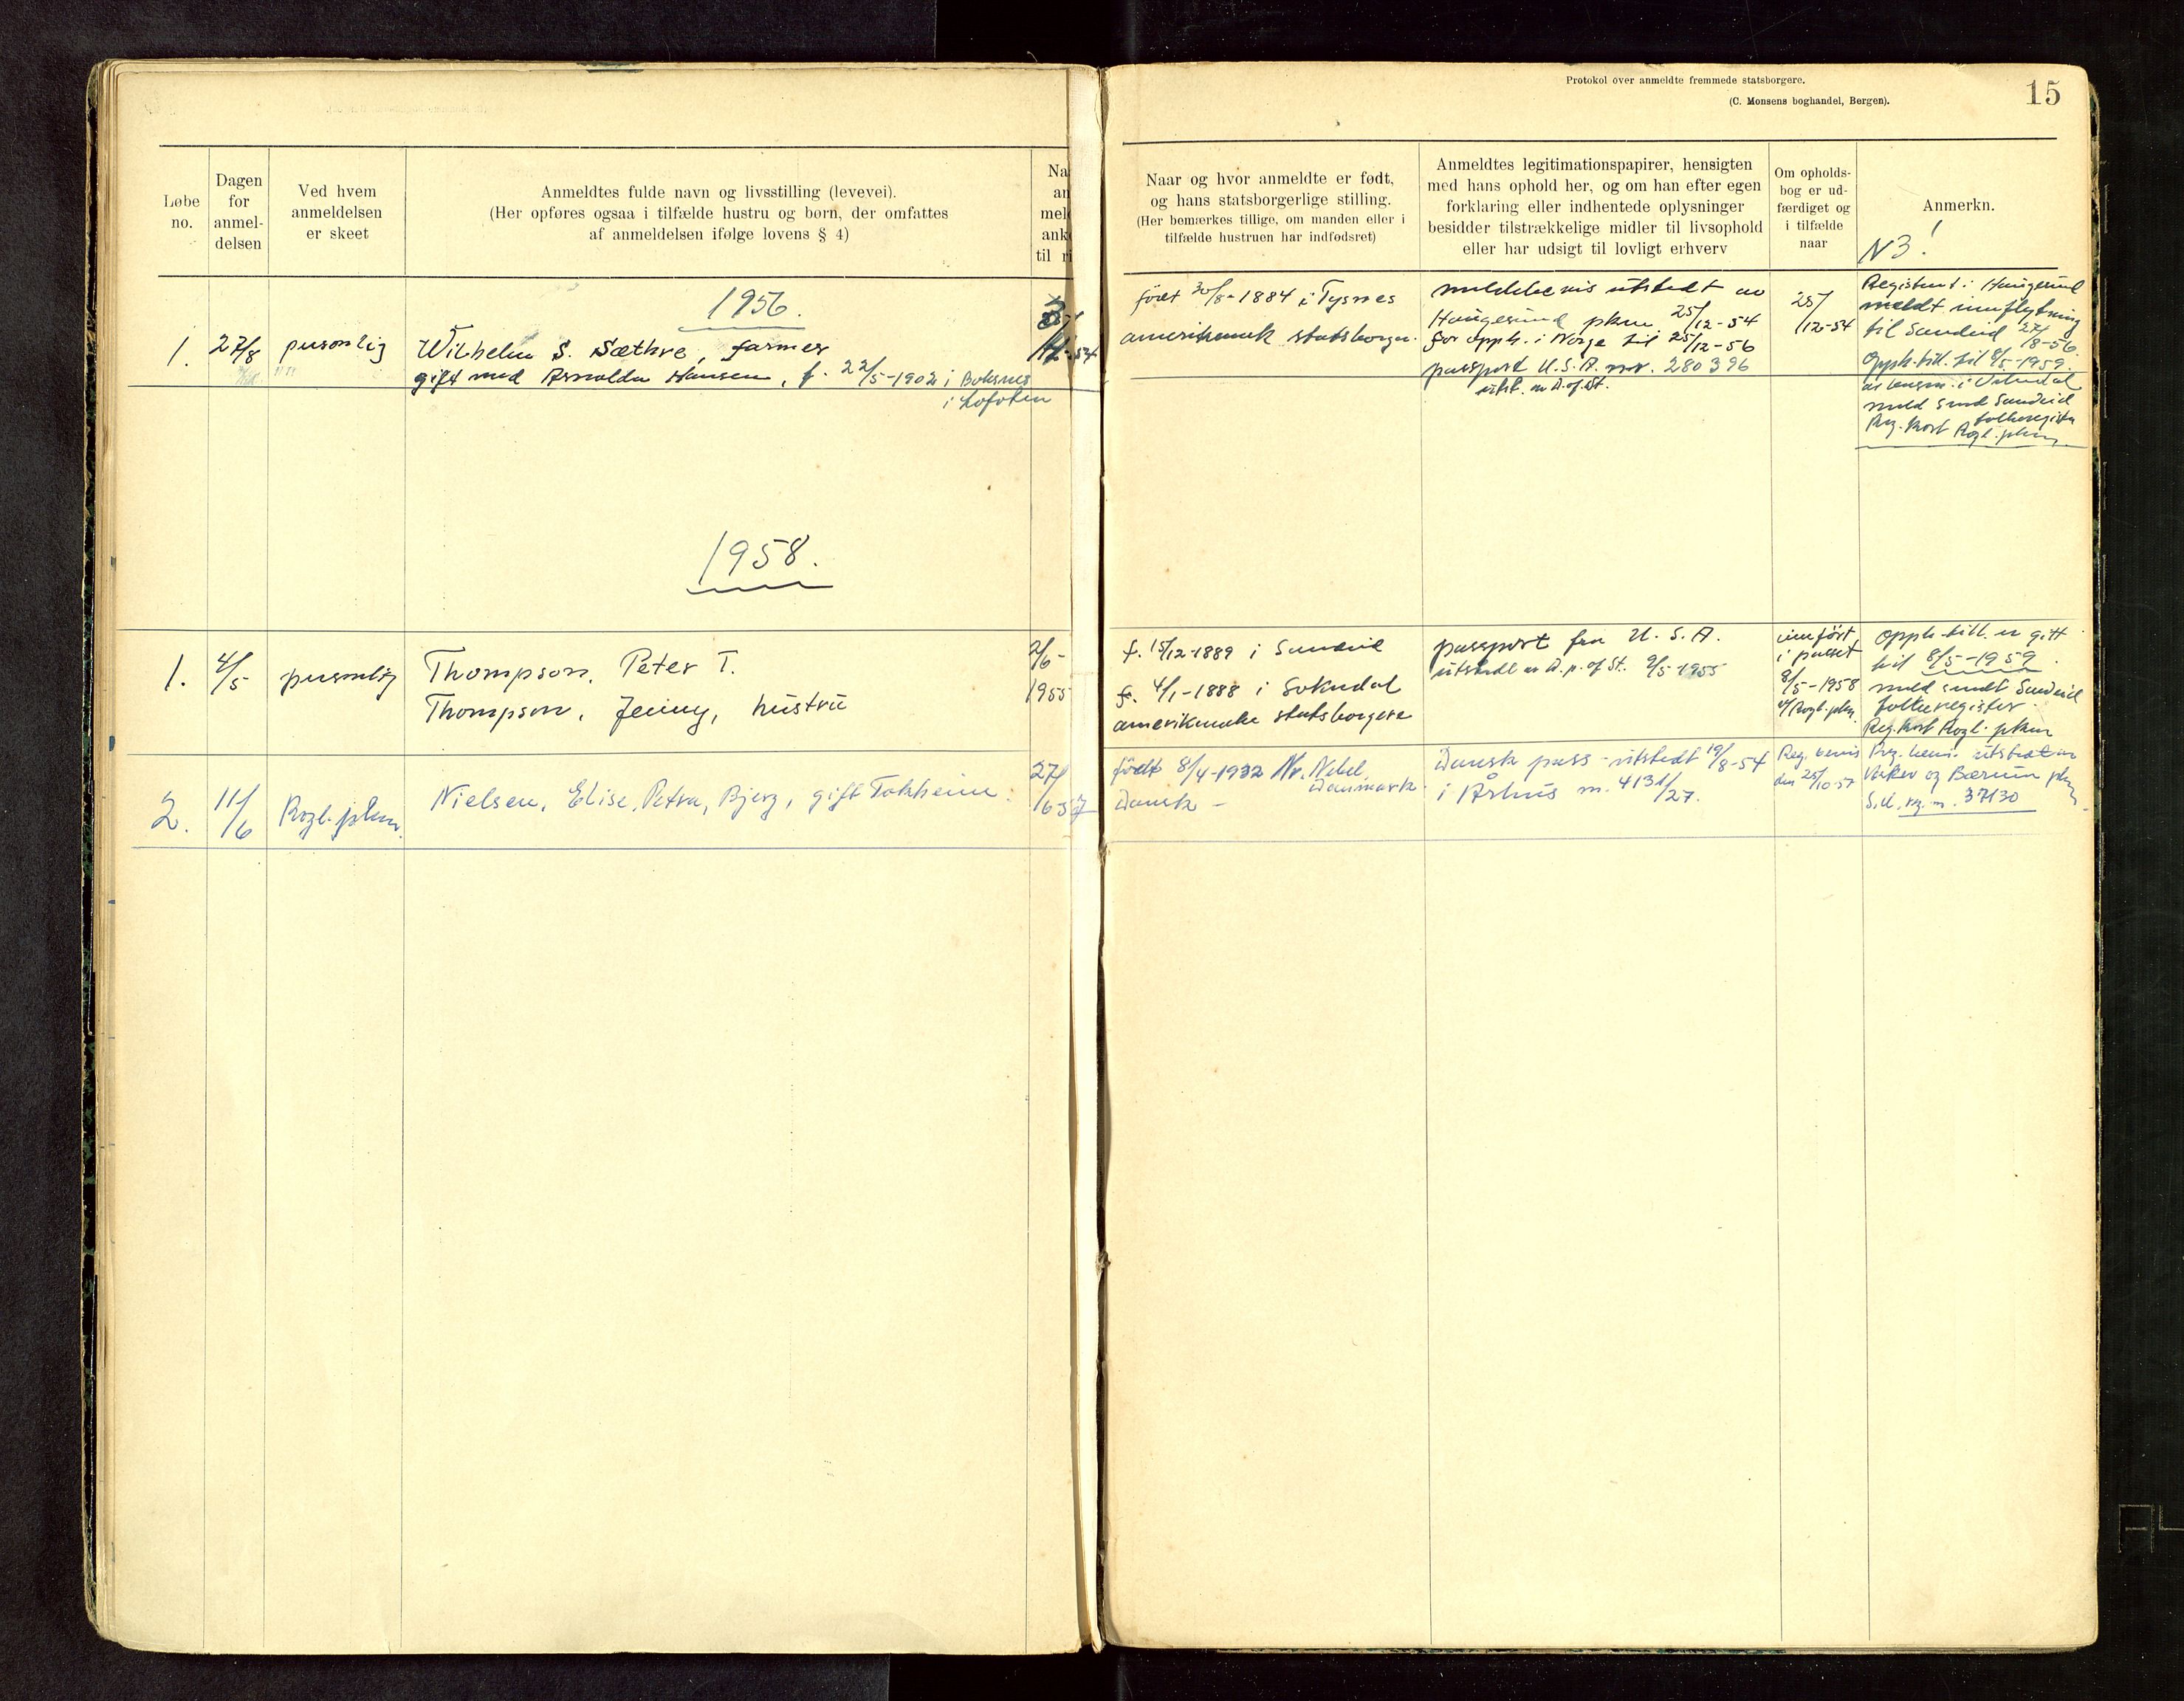 Protokol over anmeldte fremmede statsborgere.
(C. Monsens boghandel, Bergen).
15
Løbe
no.
Dagen
for
anmel-
delsen
Ved hvem
anmeldelsen
er skeet
Anmeldtes fulde navn og livsstilling (levevei).
(Her opføres ogsaa i tilfælde hustru og børn, der omfattes
af anmeldelsen ifølge lovens § 4)
Na
an
mel
ank
til ri
Naar og hvor anmeldte er født,
og hans statsborgerlige stilling.
(Her bemærkes tillige, om manden eller i
tilfælde hustruen har indfødsret)
Anmeldtes legitimationspapirer, hensigten
med hans ophold her, og om han efter egen
forklaring eller indhentede oplysninger
besidder tilstrækkelige midler til livsophold
eller har udsigt til lovligt erhverv
Om opholds-
bog er ud-
færdiget og
i tilfælde
naar
Anmerkn.
N3!
1956.
1.
27/8
personlig
Wilhelm S. Sæthre, farmer
gift med Arnolda Hansen, f. 22/5-1902 i Buksnes
i Lofoten
født 30/8-1884 i Tysnes
amerikansk statsborger.
meldebevis utstedt av
Haugesund pkm 25/12-54
for opph. i Norge til 25/12-56
passport U.S.A. nr. 280396
utst. av D. of St.
25/
12-54
Registrert i Haugesund
meldt innflytning
til Sandeid 27/8-56.
Opph.till. til 8/5-1959.
av lensm. i Vikedal
meld. send Sandeid
folkeregister
Reg. kort Rogl. pkm.
1958.
1.
4/5
personlig
Thompson, Peter T.
Thompson, Jenny, hustru
2/6-
1955
f. 15/12-1889 i Sandeid
f. 4/1-1888 i Sokndal
amerikanske statsborgere
passport fra U.S.A.
utstedt av D.p. of St. 9/5-1955
innført
i passet
8/5-1958
av Rogl. pkm.
Opph.till. er gitt
til 8/5-1959.
meld. sendt Sandeid
folkeregister.
Reg. kort Rogl. pkm
2.
11/6
Rogl. pkm.
Nielsen, Elise, Petra, Bjerg, gift Tokheim.
27/
6 57
født 8/4-1932 Nr. Nebel,
Danmark.
Dansk -
Dansk pass - utstedt 19/8-54
i Århus nr. 4131/27.
Reg. bevis
den 25/10-57
Reg. bevis utstedt av
Asker og Bærum pkm.
S.U. reg. nr. 37130